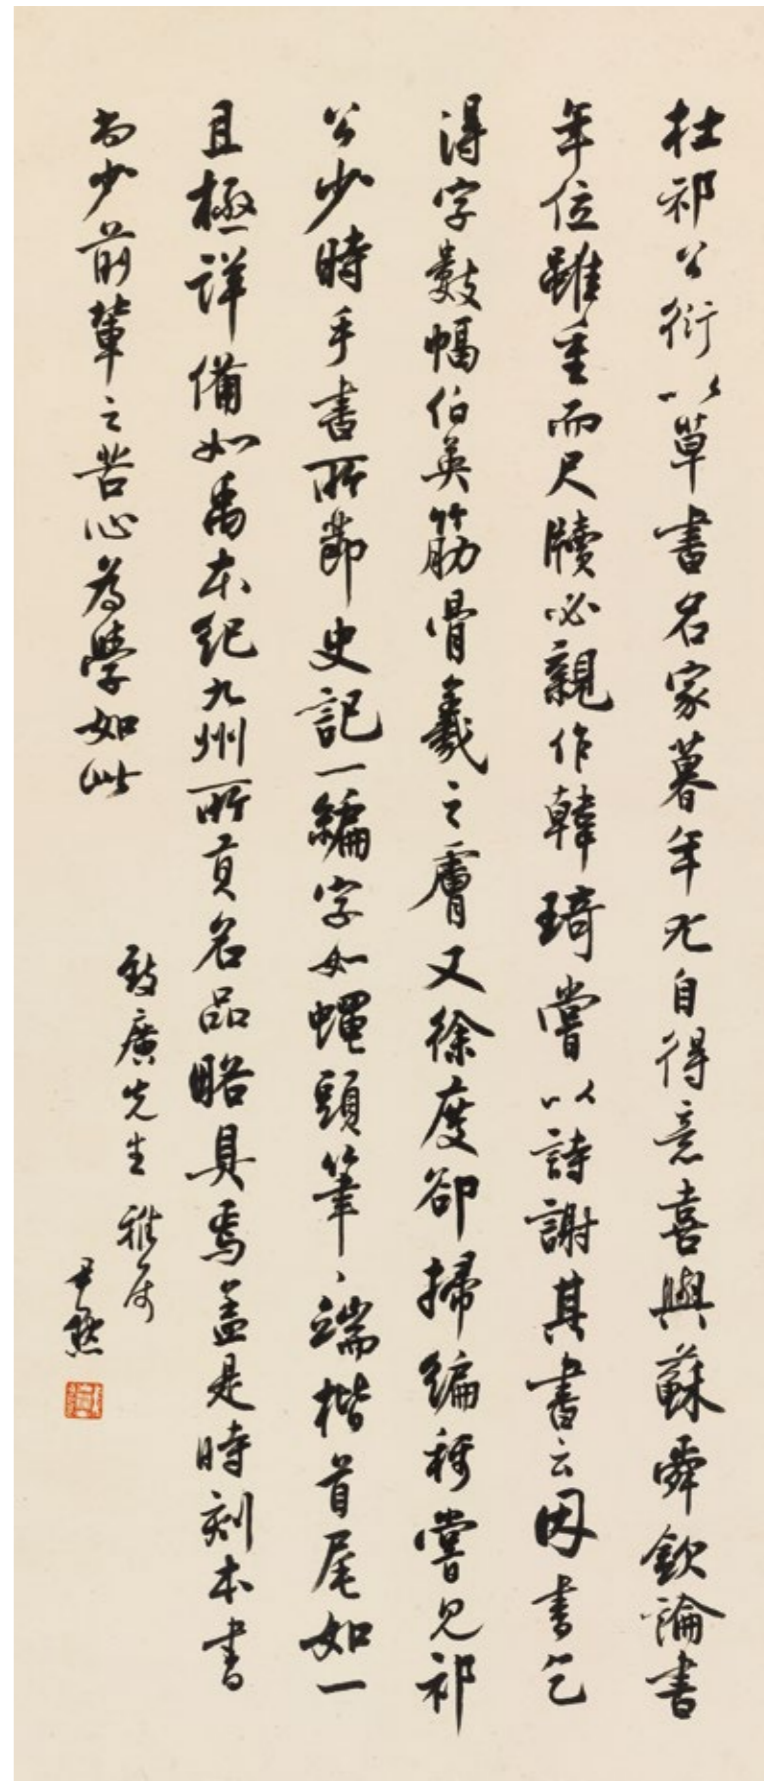 杜祁公衍以草書名家暮年尤自得意喜與蘇舜欽論書
年位雖重而尺牘必親作韓琦嘗以詩謝其書云因書乞
得字數幅伯英筋骨羲之膚又徐度卻掃編稱嘗見祁
公少時手書所節史記一編字如蠅頭筆、端楷首尾如一
且極詳備如禹本紀九州所貢名品略具焉蓋是時刻本書
尚少前輩之苦心為學如此
致廣先生雅屬
尹默